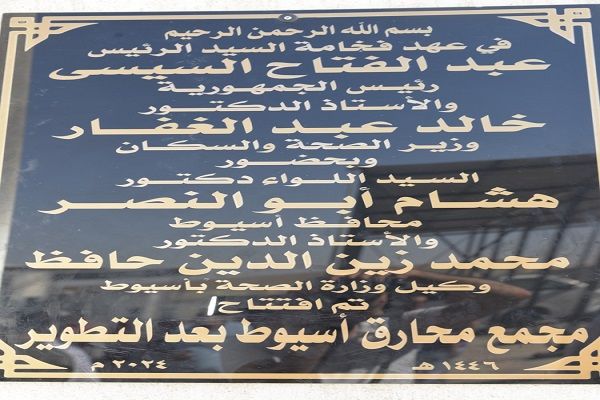 بسم الله الرحمن الرحيم
في عهد فخامة السيد الرئيس
عبد الفتاح السيسى
رئيس الجمهورية
والأستاذ الدكتور
خالد عبد الغفار
وزير الصحة والسكان
وبحضور
السيد اللواء دكتور
هشام أبو النصر
محافظ أسيوط
والأستاذ الدكتور
محمد زين الدين حافظ
وكيل وزارة الصحة بأسيوط
تم افتتاح/
مجمع محارق أسيوط بعد التطوير
١٤٤٦ هـ ٢٠٢٤ م